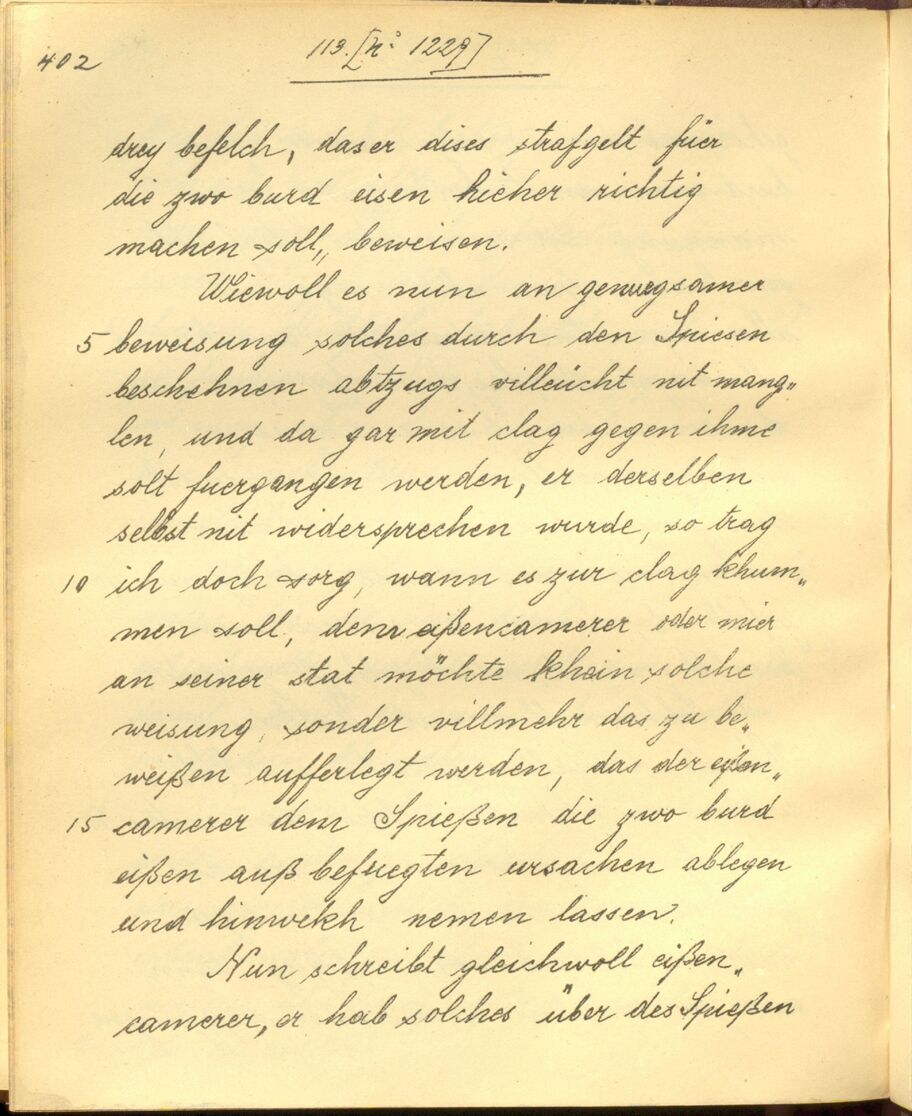 402
113. [n° 1229]
drey befelch, das er dises strafgelt füer
die zwo burd eisen hieher richtig
machen soll, beweisen.
Wiewoll es nun an genuegsamer
5 beweisung solches durch den Spiesen
beschehnen abtzugs villeücht nit mang„
len, und da gar mit clag gegen ihme
solt fuergangen werden, er derselben
selbst nit widersprechen wurde, so trag
10 ich doch sorg, wann es zur clag khum„
men soll, dem eißencamerer oder mier
an seiner stat möchte khein solche
weisung, sonder villmehr das zu be„
weißen aufferlegt werden, das der eißen„
15 camerer dem Spießen die zwo burd
eißen auß befuegten ursachen ablegen
und hinwekh nemen lassen.
Nun schreibt gleichwoll eißen„
camerer, er hab solches über des Spießen